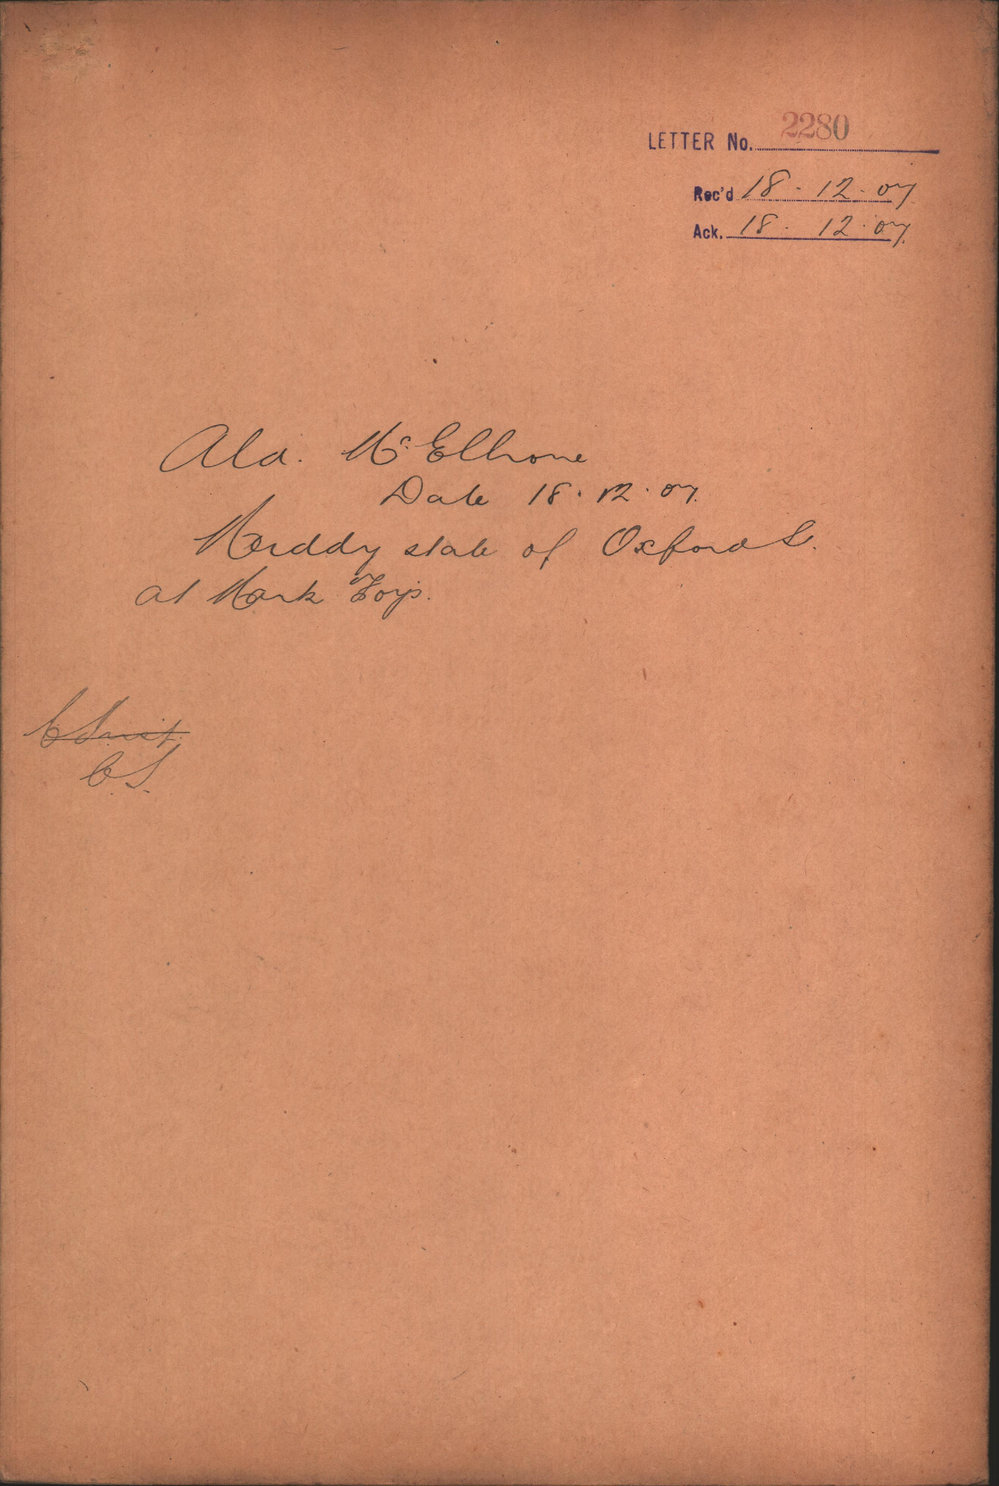 LETTER No. 2280
Rec'd 18.12.07
Ack. 18.12.07
Ald. McElhone
Date 18.12.07
Muddy state of Oxford St.
at Mark Foys.
C.S.